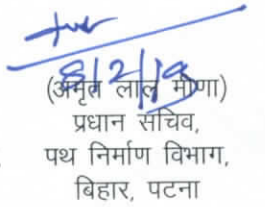 8/2/19
(अमृत लाल मीणा)
प्रधान सचिव,
पथ निर्माण विभाग,
बिहार, पटना